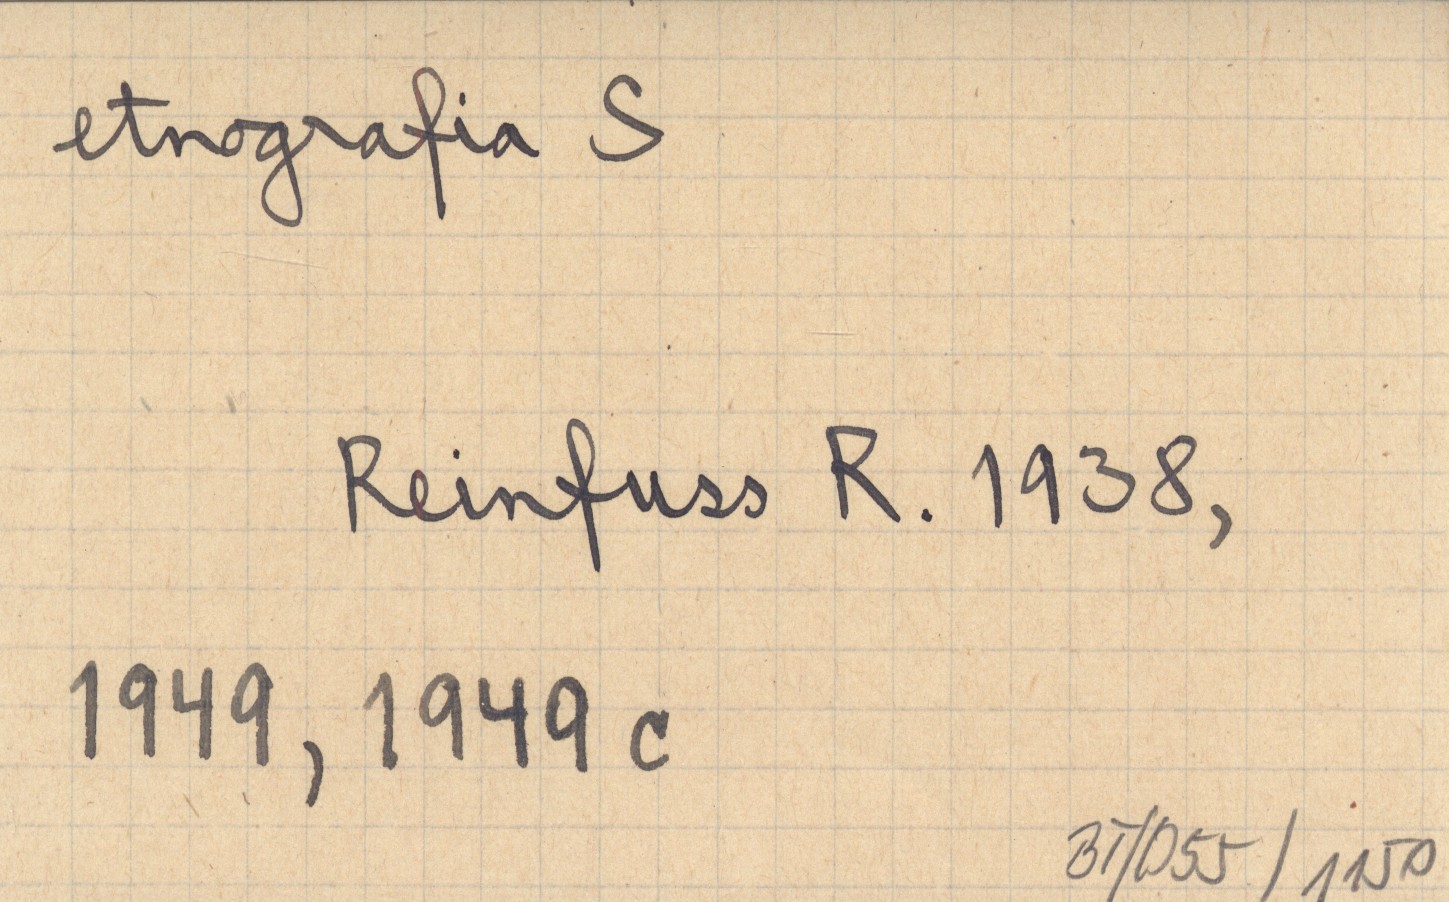 etnografia S
Reinfuss R. 1938,
1949, 1949 c
BT/055/1150